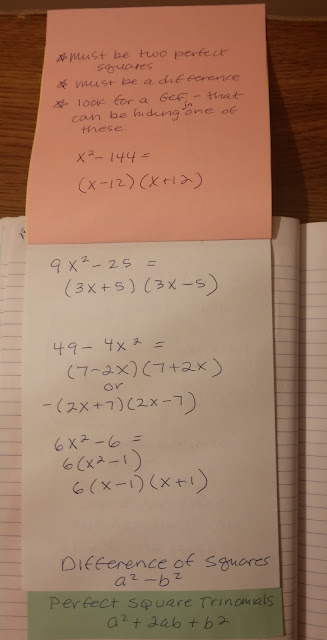 * must be two perfect
squares
* must be a difference
* look for a GCF - that
can be hiding in one of
these.
x² - 144 =
(x-12)(x+12)
9x² - 25 =
(3x+5)(3x-5)
49 - 4x² =
(7-2x)(7+2x)
or
-(2x+7)(2x-7)
6x² - 6 =
6(x²-1)
6(x-1)(x+1)
Difference of Squares
a² - b²
Perfect Square Trinomials
a² + 2ab + b²